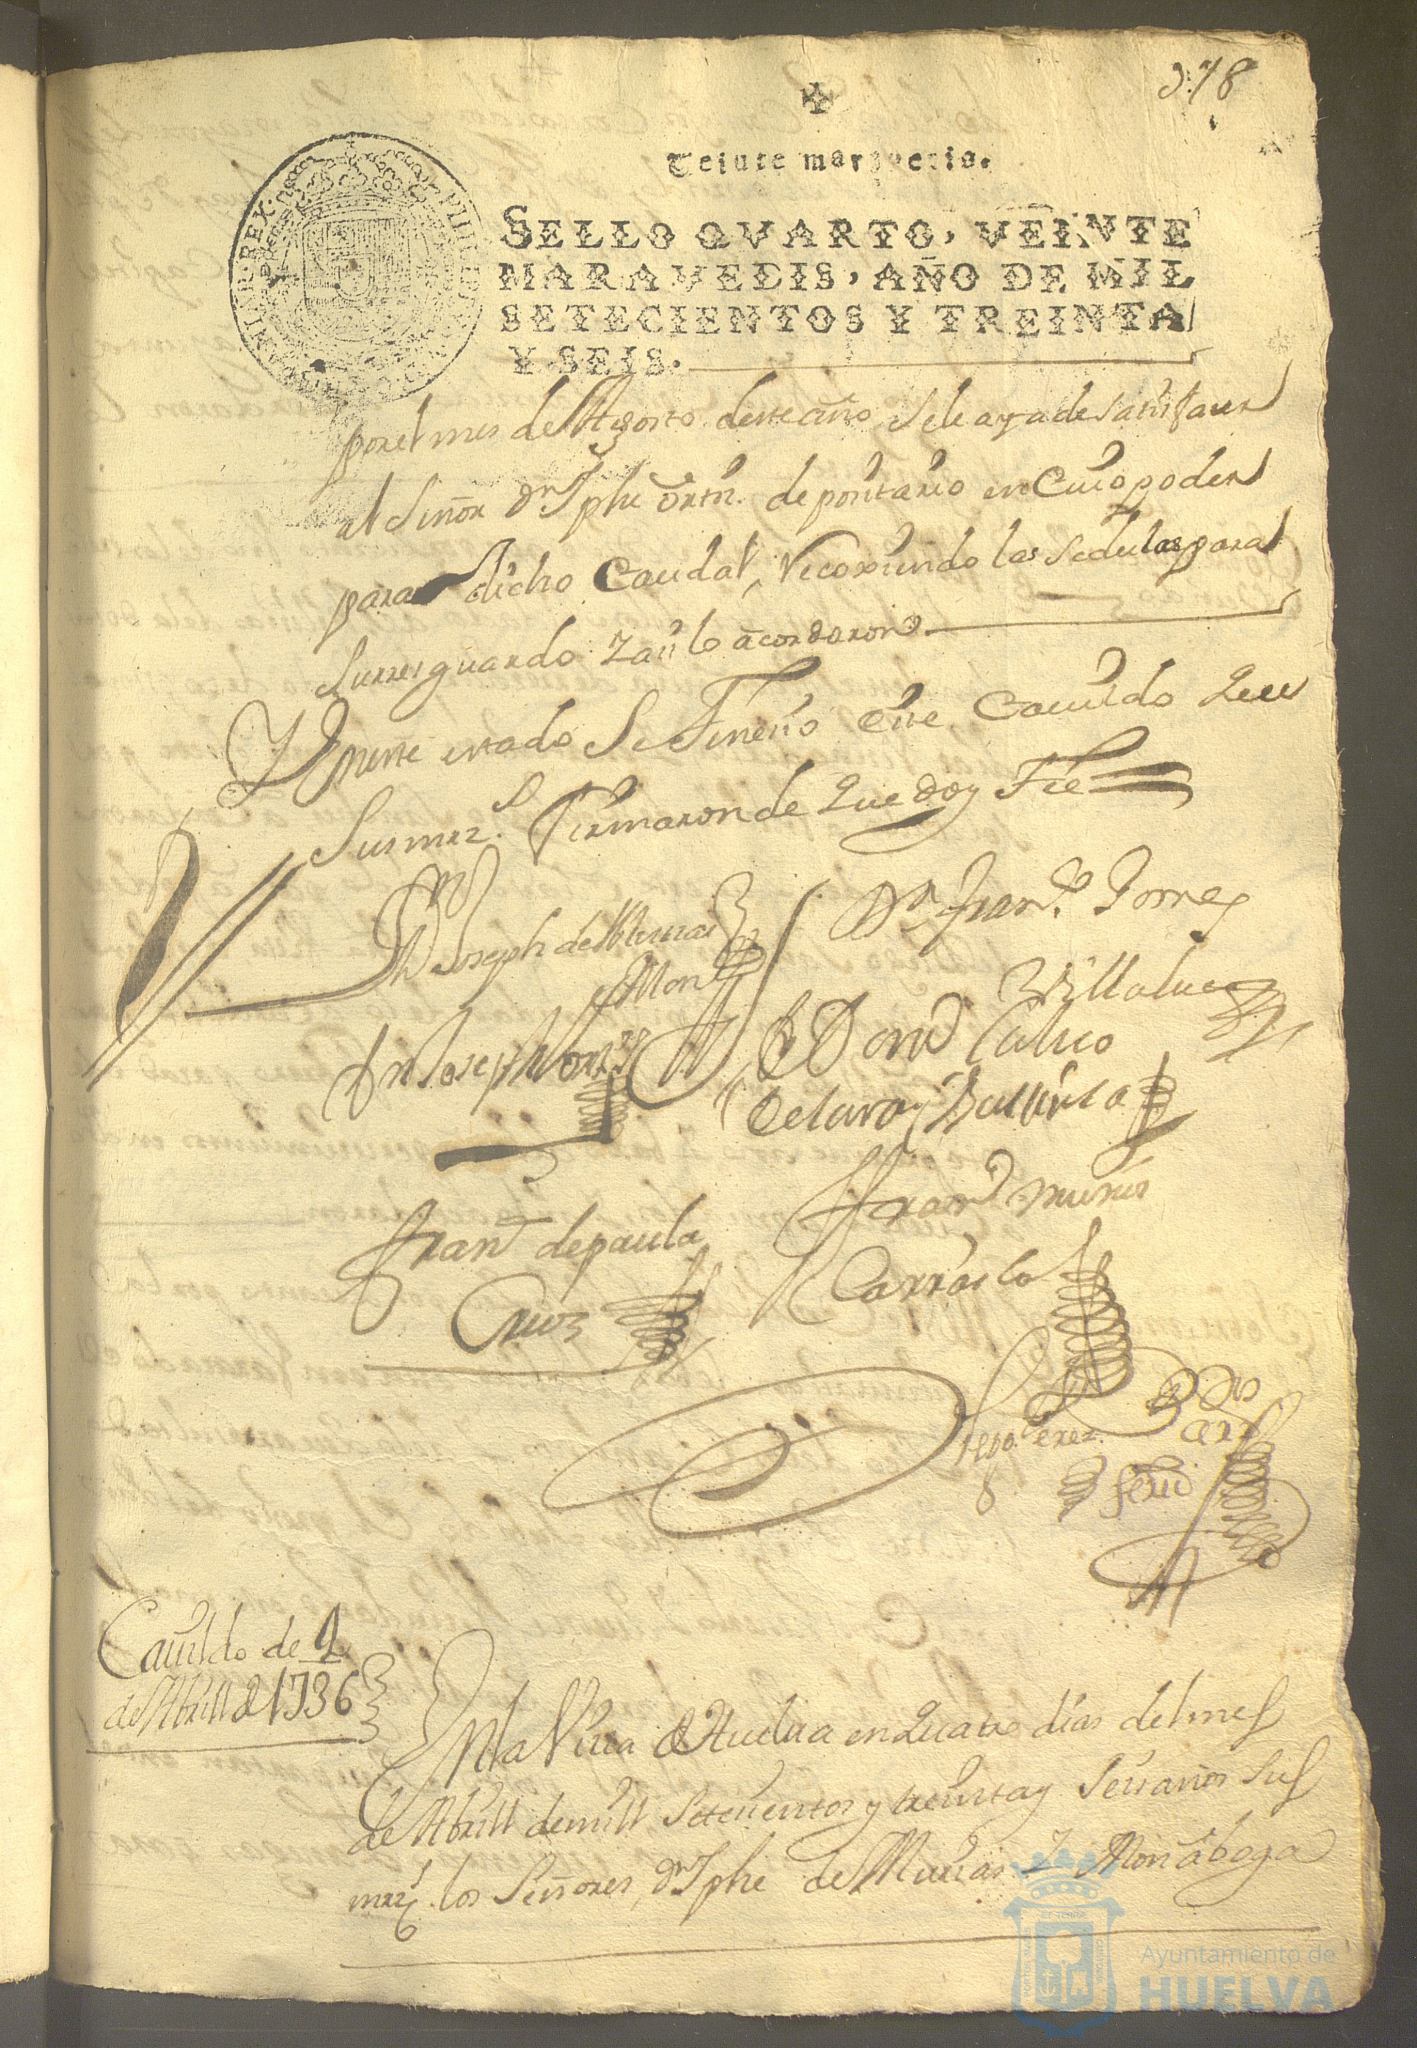 378
Veinte marauedis.
SELLO QVARTO, VEINTE
MARAVEDIS, AÑO DE MIL
SETECIENTOS Y TREINTA
Y SEIS.
por el mes de Agosto deste año Se le aya de satisfacer
al Señor Dn Jphe ortiz. depocitario en Cuio poder
para dicho Caudal, recoxiendo las Sedulas para
Su resguardo Y asi lo acordaron
Y En este estado Se Feneçio este Cauildo Que
Sus mrz.s Firmaron de Que doy Fee
Dn Joseph de Murcas
Mon
Dn Fran.co Torres
Villalua
Dn Joseph Ortiz
Dond Calixo
de Lara y
Fran.co de paula
Cruz
Fran.co muñis
Carrasco
Cauildo de 4
de Abrill de 1736
En la Villa de Huelua en Quatro dias del mes
de Abrill de mill Setecientos y treinta y Seis años Sus
mrz.s los Señores, Dn Jphe de Murcas Y Mon aboga
Ayuntamiento de
HUELVA